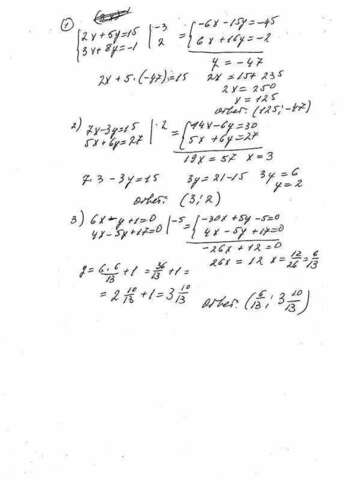 1)
{2x+5y=15 |-3 = {-6x-15y=-45
3x+8y=-1 | 2 6x+16y=-2
y=-47
2x+5·(-47)=15 2x=15+235
2x=250
x=125
Ответ: (125;-47)
2) 7x-3y=15 |·2 = {14x-6y=30
5x+6y=27 5x+6y=27
19x=57 x=3
7·3-3y=15 3y=21-15 3y=6
y=2
Ответ: (3;2)
3) 6x-y+1=0 |-5 = {-30x+5y-5=0
4x-5y+17=0 4x-5y+17=0
-26x+12=0
26x=12 x=12/26=6/13
y=6·6/13+1=36/13+1=
=2 10/13+1=3 10/13 Ответ: (6/13; 3 10/13)